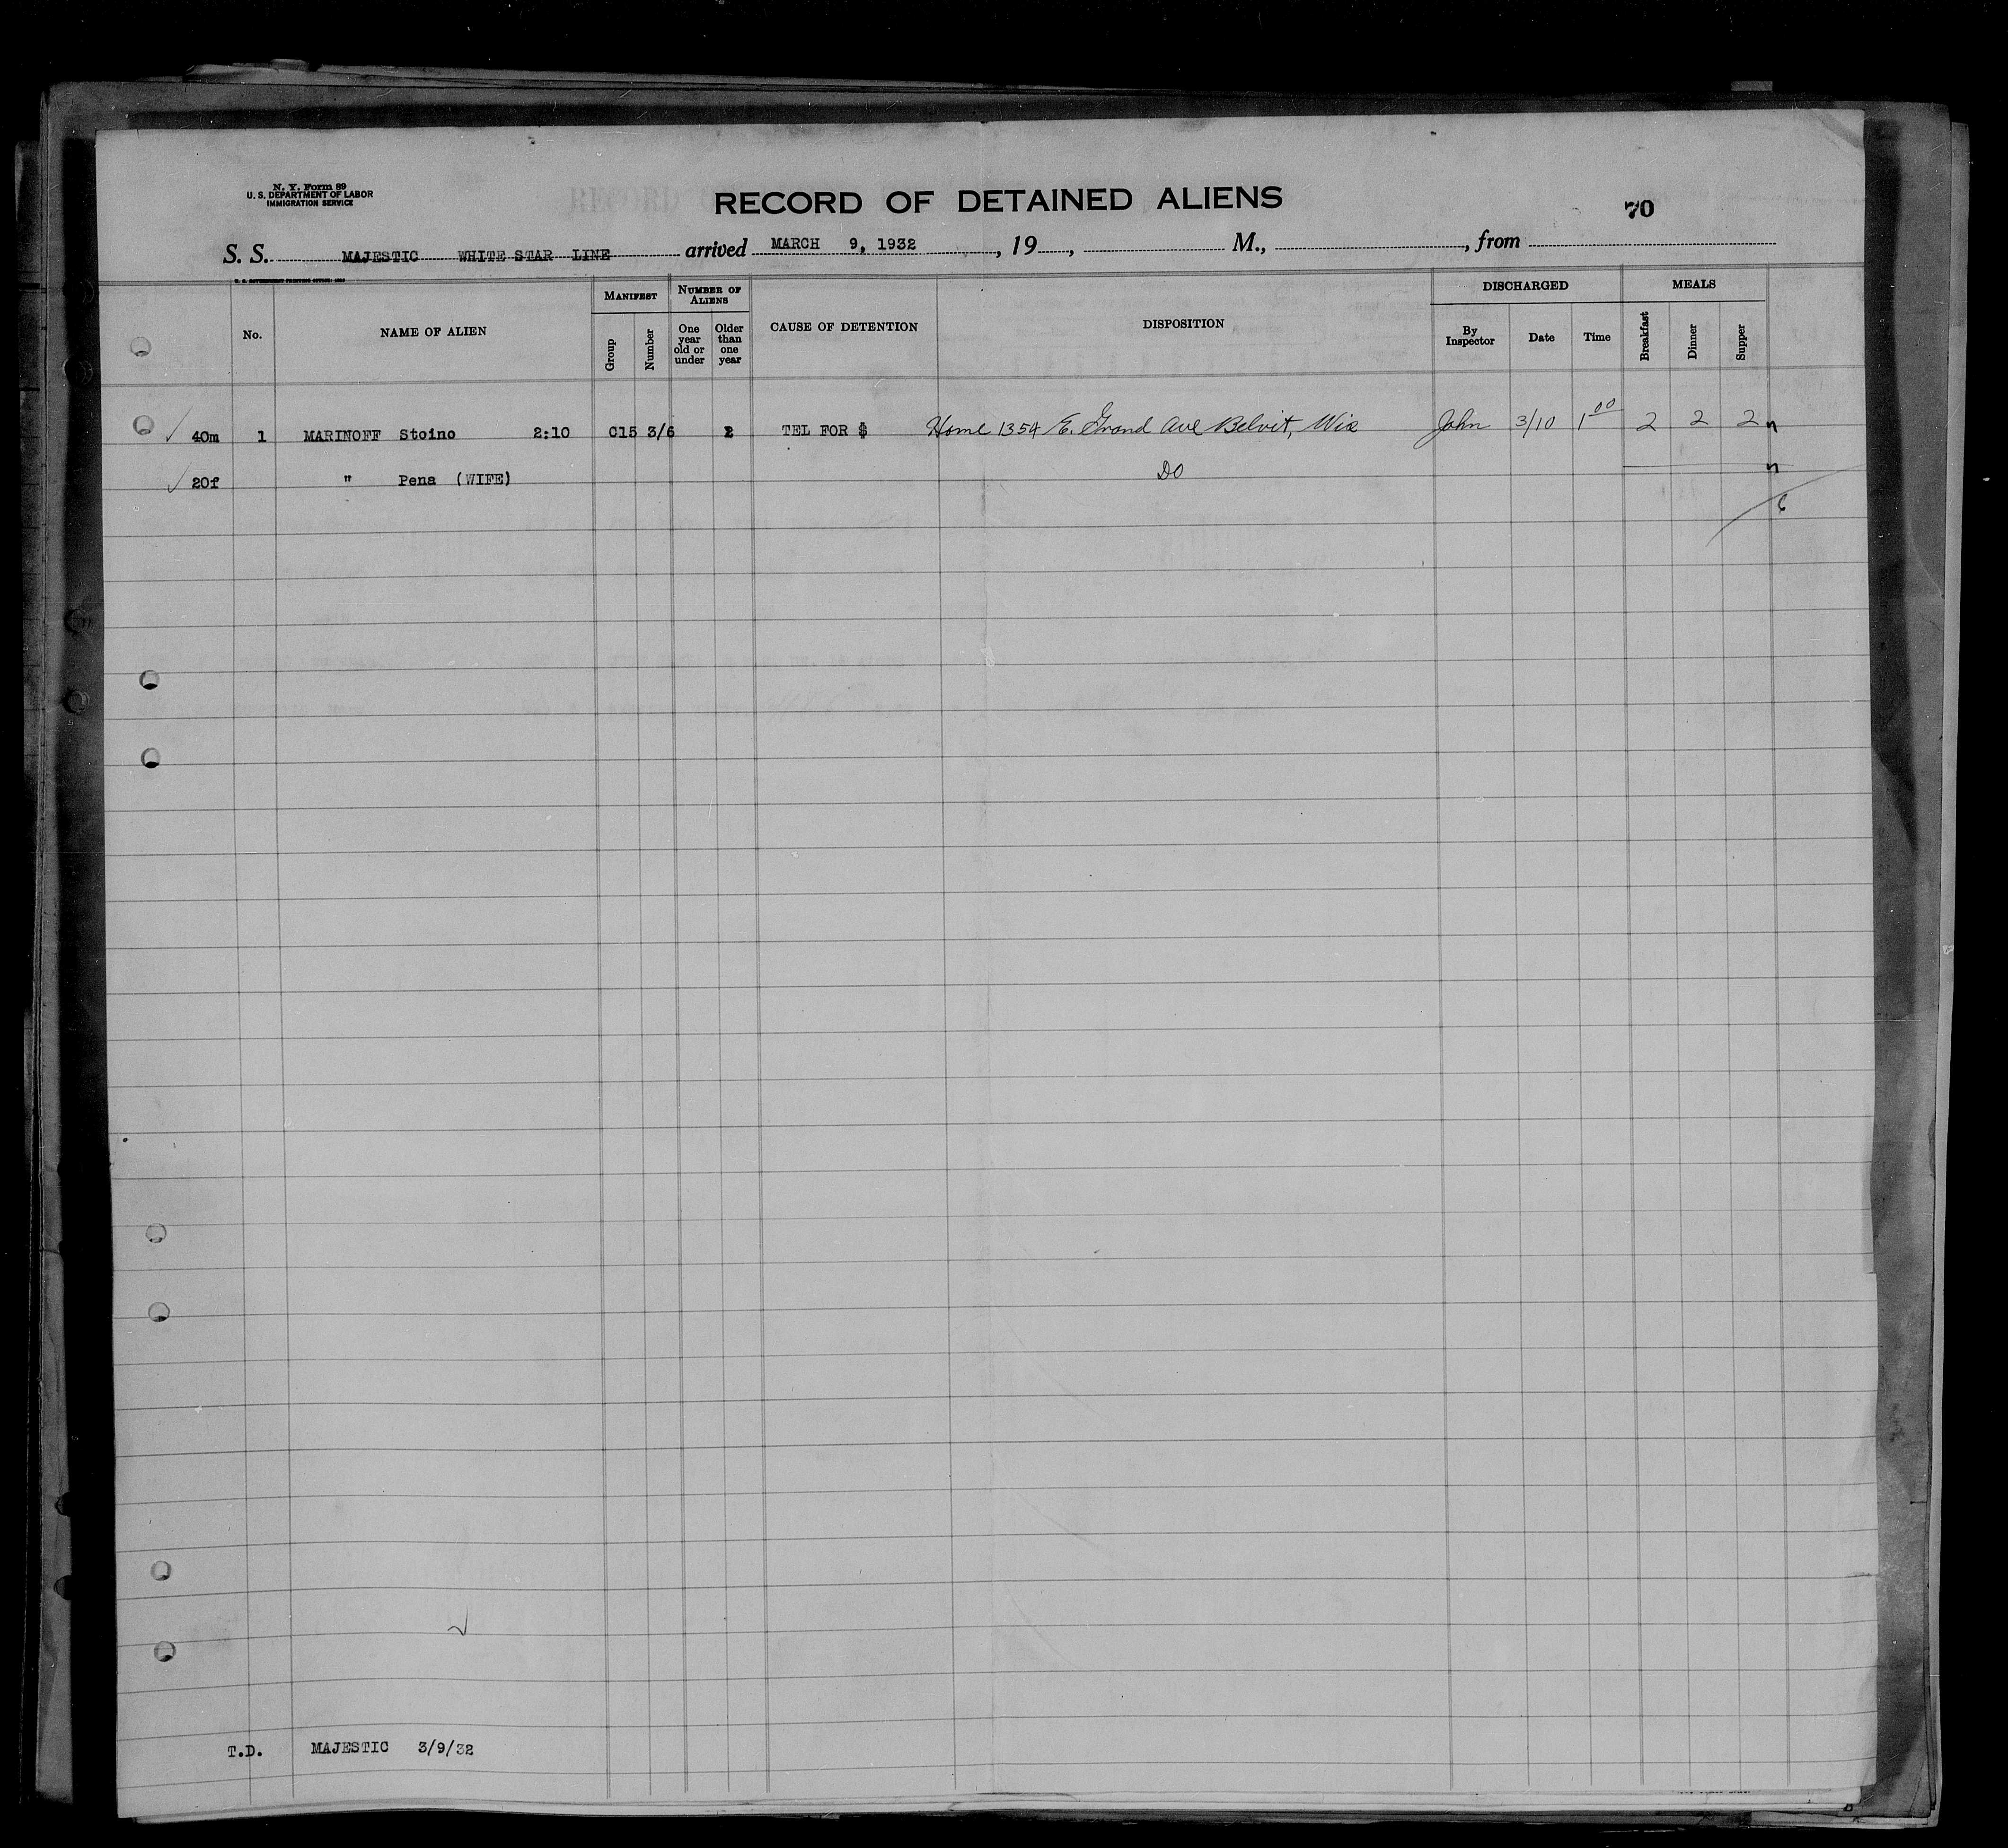 N. Y. Form 89
U. S. DEPARTMENT OF LABOR
IMMIGRATION SERVICE
RECORD OF DETAINED ALIENS
70
S. S. MAJESTIC WHITE STAR LINE arrived MARCH 9, 1932, 19, M., from
U. S. GOVERNMENT PRINTING OFFICE
No. NAME OF ALIEN MANIFEST Group Number NUMBER OF ALIENS One year old or under Older than one year CAUSE OF DETENTION DISPOSITION DISCHARGED By Inspector Date Time MEALS Breakfast Dinner Supper
40m 1 MARINOFF Stoino 2:10 C15 3/6 2 TEL FOR $ Home 1354 E. Grand Ave Belvit, Wis John 3/10 1 00 2 2 2 n
20f " Pena (WIFE) DO n
6
T.D. MAJESTIC 3/9/32